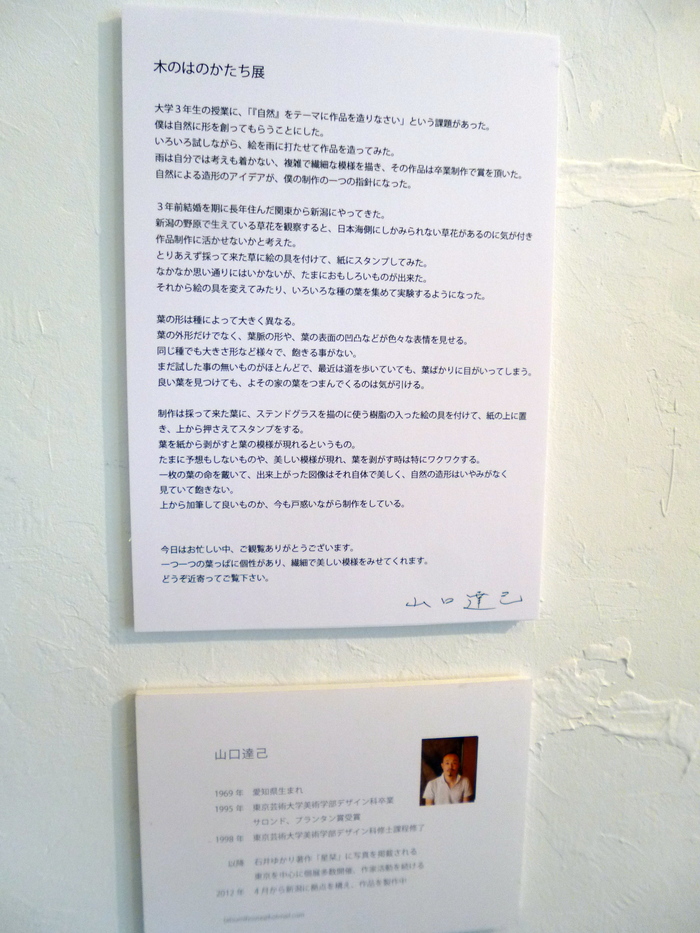 木のはのかたち展
大学３年生の授業に、「『自然』をテーマに作品を造りなさい」という課題があった。
僕は自然に形を創ってもらうことにした。
いろいろ試しながら、絵を雨に打たせて作品を造ってみた。
雨は自分では考えも着かない、複雑で繊細な模様を描き、その作品は卒業制作で賞を頂いた。
自然による造形のアイデアが、僕の制作の一つの指針になった。
３年前結婚を期に長年住んだ関東から新潟にやってきた。
新潟の野原で生えている草花を観察すると、日本海側にしかみられない草花があるのに気が付き
作品制作に活かせないかと考えた。
とりあえず採って来た草に絵の具を付けて、紙にスタンプしてみた。
なかなか思い通りにはいかないが、たまにおもしろいものが出来た。
それから絵の具を変えてみたり、いろいろな種の葉を集めて実験するようになった。
葉の形は種によって大きく異なる。
葉の外形だけでなく、葉脈の形や、葉の表面の凹凸などが色々な表情を見せる。
同じ種でも大きさ形など様々で、飽きる事がない。
まだ試した事の無いものがほとんどで、最近は道を歩いていても、葉ばかりに目がいってしまう。
良い葉を見つけても、よその家の葉をつまんでくるのは気が引ける。
制作は採って来た葉に、ステンドグラスを描のに使う樹脂の入った絵の具を付けて、紙の上に置
き、上から押さえてスタンプをする。
葉を紙から剥がすと葉の模様が現れるというもの。
たまに予想もしないものや、美しい模様が現れ、葉を剥がす時は特にワクワクする。
一枚の葉の命を戴いて、出来上がった図像はそれ自体で美しく、自然の造形はいやみがなく
見ていて飽きない。
上から加筆して良いものか、今も戸惑いながら制作をしている。
今日はお忙しい中、ご観覧ありがとうございます。
一つ一つの葉っぱに個性があり、繊細で美しい模様をみせてくれます。
どうぞ近寄ってご覧下さい。
山口達己
山口達己
1969 年 愛知県生まれ
1995 年 東京芸術大学美術学部デザイン科卒業
サロンド、プランタン賞受賞
1998 年 東京芸術大学美術学部デザイン科修士課程修了
以降 石井ゆかり著作「星栞」に写真を掲載される
東京を中心に個展多数開催、作家活動を続ける
2012 年 4 月から新潟に拠点を構え、作品を製作中